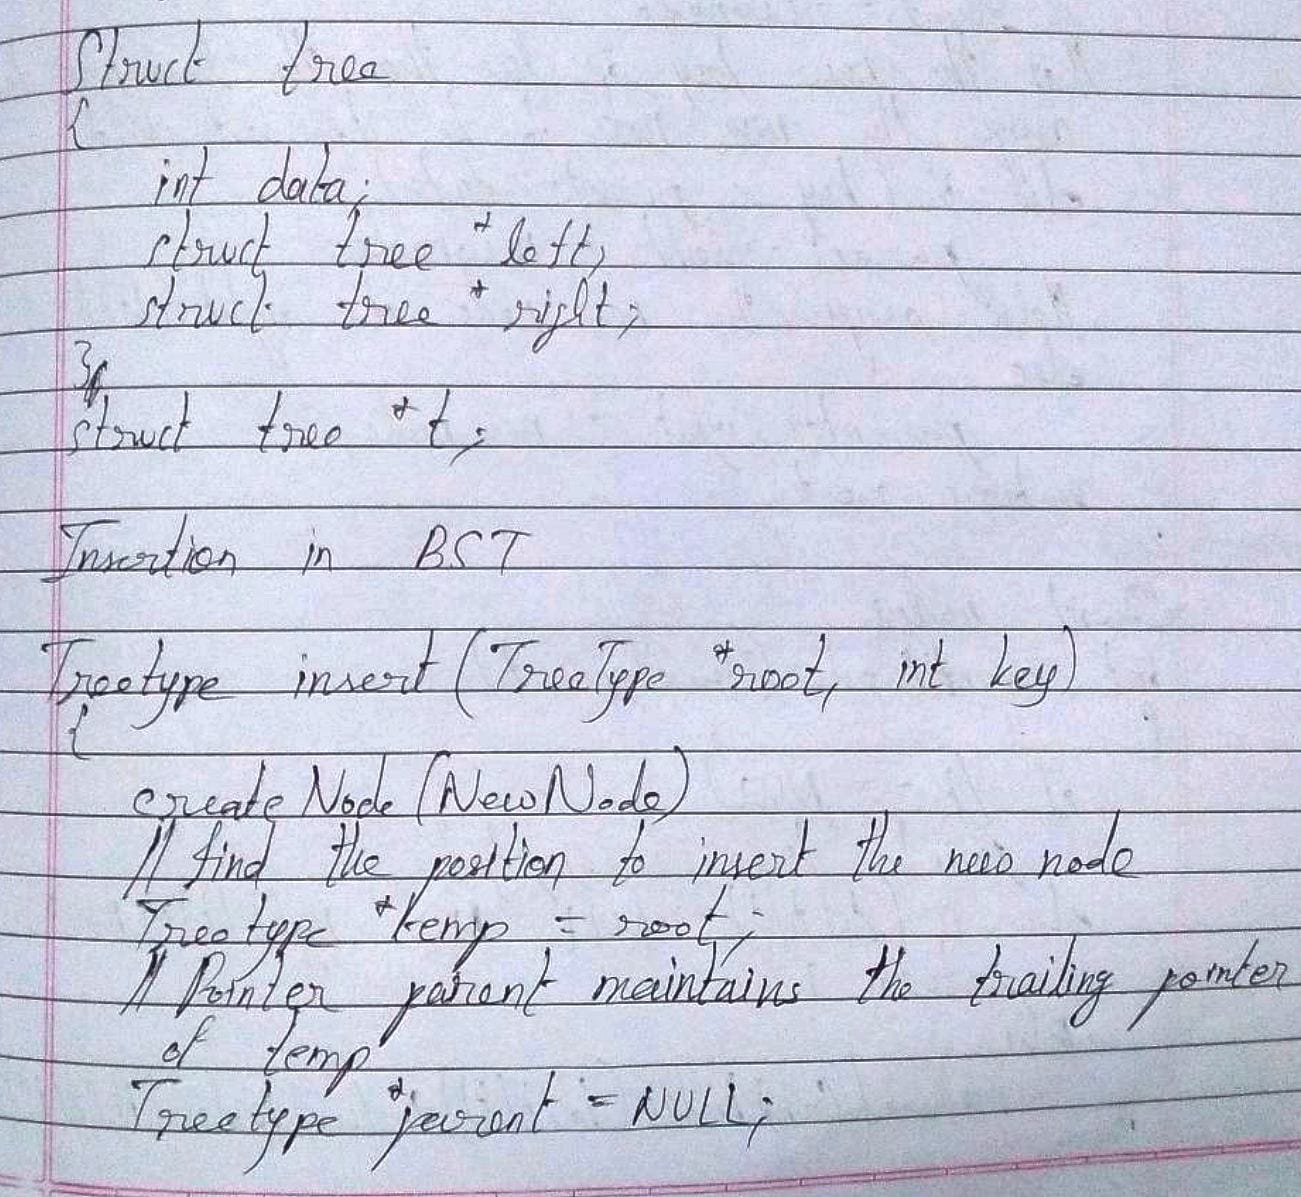 Struct tree
{
int data;
struct tree *left;
struct tree * right;
};
struct tree *t;
Insertion in BST
Treetype insert (TreeType *root, int key)
{
create Node (New Node)
// find the position to insert the new node
Treetype *temp = root;
// Pointer parent maintains the trailing pointer
of temp
Treetype *parent = NULL;